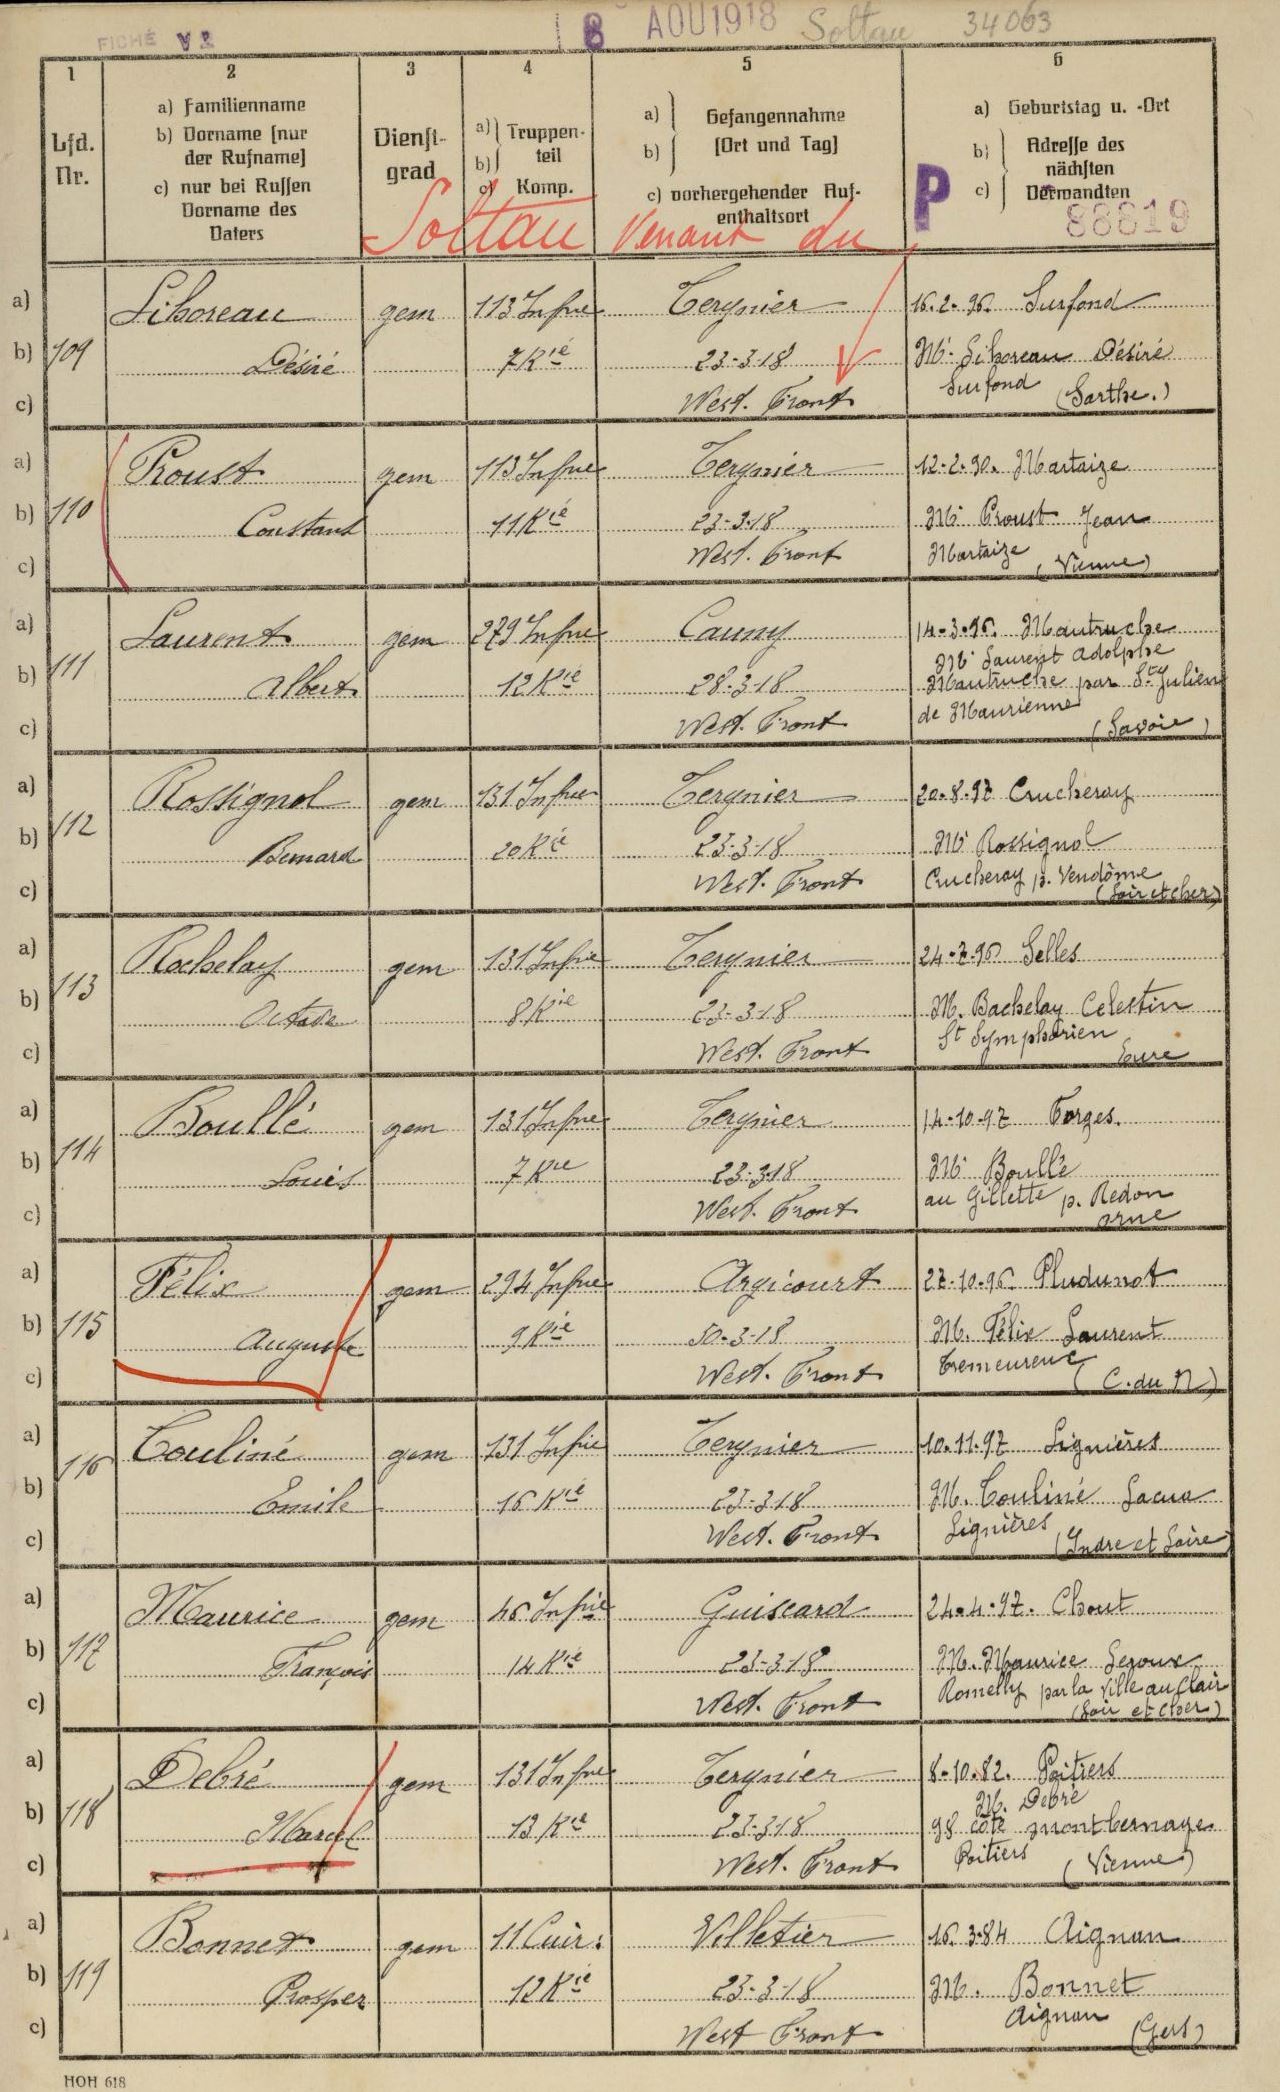 FICHÉ V2 8 AOU 1918 Soltau 34063
1 2 3 4 5 6
Lfd. Nr.
a) Familienname
b) Vorname [nur der Rufname]
c) nur bei Russen Vorname des Vaters
Dienst-grad
a) b) Truppen-teil
c) Komp.
a) b) Gefangennahme [Ort und Tag]
c) vorhergehender Auf-enthaltsort
a) Geburtstag u. -Ort
b) c) Adresse des nächsten Verwandten
P 88819
Soltau Venant du
a) Liboreau gem 113 Infrie Tergnier 16.2.96. Surfond
b) 109 Désiré 7 Kie 23-3-18 Mr Liboreau Désiré
c) West. Front Surfond (Sarthe.)
a) Proust gem 113 Infrie Tergnier 12.2.90. Martaize
b) 110 Constant 11 Kie 23-3-18 Mr Proust Jean
c) West. Front Martaize (Vienne)
a) Laurent gem 279 Infrie Cauny 14.3.96. Mautruche
Mr Laurent Adolphe
b) 111 Albert 12 Kie 28-3-18 Mautruche par St Julien
c) West. Front de Maurienne (Savoie)
a) Rossignol gem 131 Infrie Tergnier 20.8.97 Crucheray
b) 112 Bernard 20 Kie 23-3-18 Mr Rossignol
c) West. Front Crucheray p. Vendôme (Loir et Cher)
a) Rachelay gem 131 Infrie Tergnier 24.7.96 Selles
b) 113 Octave 8 Kie 23-3-18 M. Bachelay Celestin
c) West. Front St Symphorien Eure
a) Boullé gem 131 Infrie Tergnier 14.10.97 Forges.
b) 114 Louis 7 Kie 23-3-18 Mr Boullé
c) West. Front au Gillette p. Redon orne
a) Félix gem 294 Infrie Argicourt 27.10.96. Pludunot
b) 115 Auguste 9 Kie 50-3-18 M. Félix Laurent
c) West. Front Tremeureuc (C. du N)
a) Touliné gem 131 Infrie Tergnier 10.11.97 Lignières
b) 116 Emile 16 Kie 23-3-18 M. Touliné
c) West. Front Lignières (Indre et Loire)
a) Maurice gem 46 Infrie Guiscard 24.4.97. Chout
b) 117 François 14 Kie 23-3-18 M. Maurice Leroux
c) West. Front Romelly par la Ville au Clair (Loir et Cher)
a) Debré gem 131 Infrie Tergnier 8-10.82. Poitiers
M. Debré
b) 118 Marcel 13 Kie 23-3-18 98 côte montbernage
c) West. Front Poitiers (Vienne)
a) Bonnet gem 11 Cuir: Villetier 16.3.84 Aignan
b) 119 Prosper 12 Kie 23-3-18 M. Bonnet
c) West Front Aignan (Gers)
HOH 618